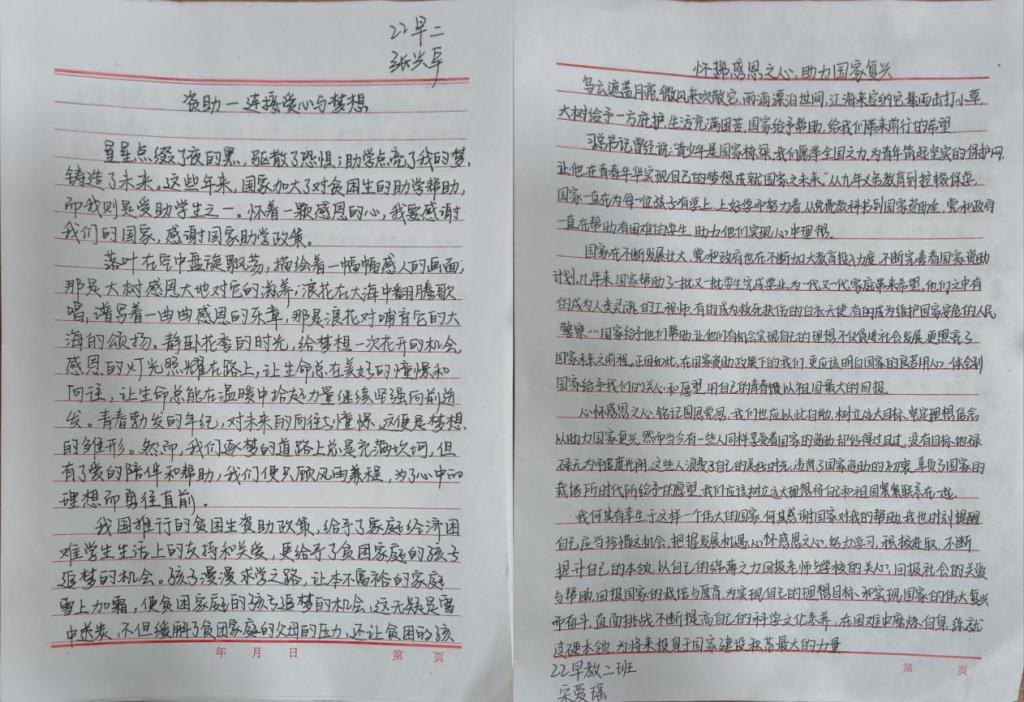 22早二
张兴卓
资助一连接爱心与梦想
星星点缀了夜的黑，驱散了恐惧；助学点亮了我的梦，
铸造了未来。这些年来，国家加大了对贫困生的助学帮助，
而我则是受助学生之一。怀着一颗感恩的心，我要感谢
我们的国家，感谢国家助学政策。
落叶在空中盘旋飘荡，描绘着一幅幅感人的画面，
那是大树感恩大地对它的滋养；浪花在大海中翻腾歌
唱，谱写着一曲曲感恩的乐章，那是浪花对哺育它的大
海的颂扬。静卧花季的时光，给梦想一次花开的机会，
感恩的灯光照耀在路上，让生命总在美好的憧憬和
向往，让生命总能在温暖中拾起力量继续坚强向前进
发。青春勃发的年纪，对未来的向往与憧憬，这便是梦想
的雏形。然而，我们逐梦的道路上总是充满坎坷，但
有了爱的陪伴和帮助，我们便只顾风雨兼程，为了心中的
理想而勇往直前。
我国推行的贫困生资助政策，给予了家庭经济困
难学生生活上的支持和关爱，更给予了贫困家庭的孩子
追梦的机会。孩子漫漫求学之路，让本不富裕的家庭
雪上加霜，使贫困家庭的孩子追梦的机会，这无疑是雪
中送炭，不但缓解了贫困家庭的父母的压力，还让贫困的孩
年 月 日 第 页
怀揣感恩之心，助力国家复兴
乌云遮盖月亮，微风来吹散它，雨滴漂泊世间，江海来接纳它，暴雨击打小草，
大树给予一方庇护，生活充满困苦，国家给予帮助，给我们带来前行的希望
习总书记曾经说："青少年是国家栋梁，我们愿举全国之力，为青年筑起坚实的保护网，
让他在青春年华实现自己的梦想成就国家之未来。"从九年义务教育到控辍保学，
国家一直在为每一位孩子有学上，上好学而努力着，从免费教科书到国家资助金，党和政府
一直在帮助有困难的学生，助力他们实现心中理想。
国家在不断发展壮大，党和政府也在不断加大教育投入力度，不断完善着国家资助
计划，几年来，国家帮助了一批又一批学生完成学业，为一代又一代家庭带来希望，他们之中有
的成为人类灵魂的工程师，有的成为救死扶伤的白衣天使，有的成为维护国家安危的人民
警察……国家给予他们帮助，让他们有机会实现自己的理想，不仅促进社会发展，更照亮了
国家未来前程，正因如此，在国家资助政策下的我们，更应该明白国家的良苦用心，体会到
国家给予我们的关心和愿望，用自己的青春候以祖国最大的回报。
心怀感恩之心，铭记国恩党恩，我们也应从此自励，树立远大目标，坚定理想信念
以助力国家复兴，然而当今有一些人同样享受着国家的资助，却仍得过且过，没有目标，地碌
碌无为而虚度光阴，这些人浪费了自己的美好时光，违背了国家资助的初衷，辜负了国家的
栽培，所时代所给予的愿望，我们应该树立远大理想，将自己和祖国紧紧联系在一起。
我何其有幸生于这样一个伟大的国家，何其感谢国家对我的帮助，我也时刻提醒
自己，应当珍惜之机会，把握发展机遇，心怀感恩之心，努力学习，积极进取，不断
提升自己的本领，以自己的绵薄之力回报老师与学校的关心，回报社会的关爱
与帮助，回报国家的栽培与厚育，为实现自己的理想目标，和实现国家的伟大复兴
而奋斗，直面挑战，不断提高自己的科学文化素养，在困难中磨炼自身，练就
过硬本领，为将来投身于国家建设奉献最大的力量
第 页
22早教二班
宋爱瑶